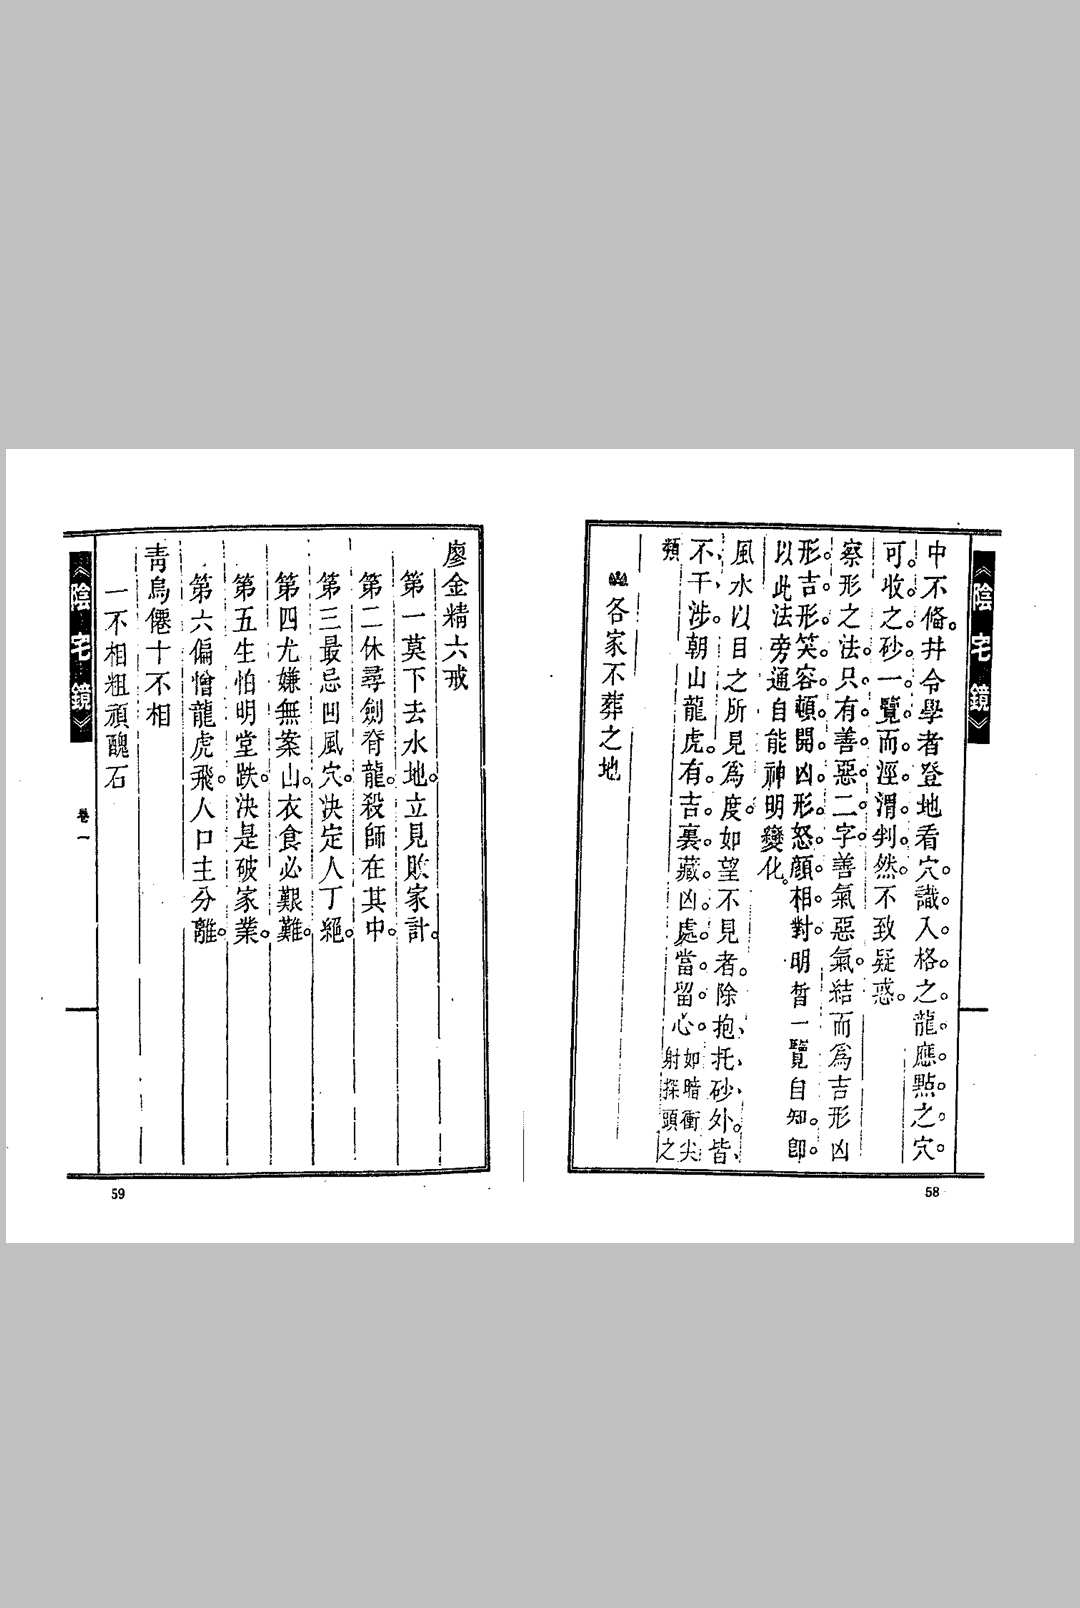 《陰宅鏡》
中不俻井令學者登地看穴。識入格之龍應點之穴。
可收之砂一覽而涇渭判然不致疑惑。
察形之法只有善惡二字善氣惡氣結而爲吉形凶
形吉形笑容頓開凶形怒顔相對明晳一覽自知。卽
以此法旁通自能神明變化。
風水以目之所見爲度。如望不見者。除抱、托、砂外。皆、
不干涉。朝山龍虎。有吉裏藏凶處當留心。如暗衝尖
射探頭之
類
各家不葬之地
58
廖金精六戒
第一莫下去水地。立見敗家計。
第二休尋劍脊龍。殺師在其中。
第三最忌凹風穴。决定人丁絕。
第四尤嫌無案山。衣食必艱難。
第五生怕明堂跌。決是破家業。
第六偏憎龍虎飛。人口主分離。
靑烏僊十不相
一不相粗頑醜石
《陰宅鏡》
卷一
59